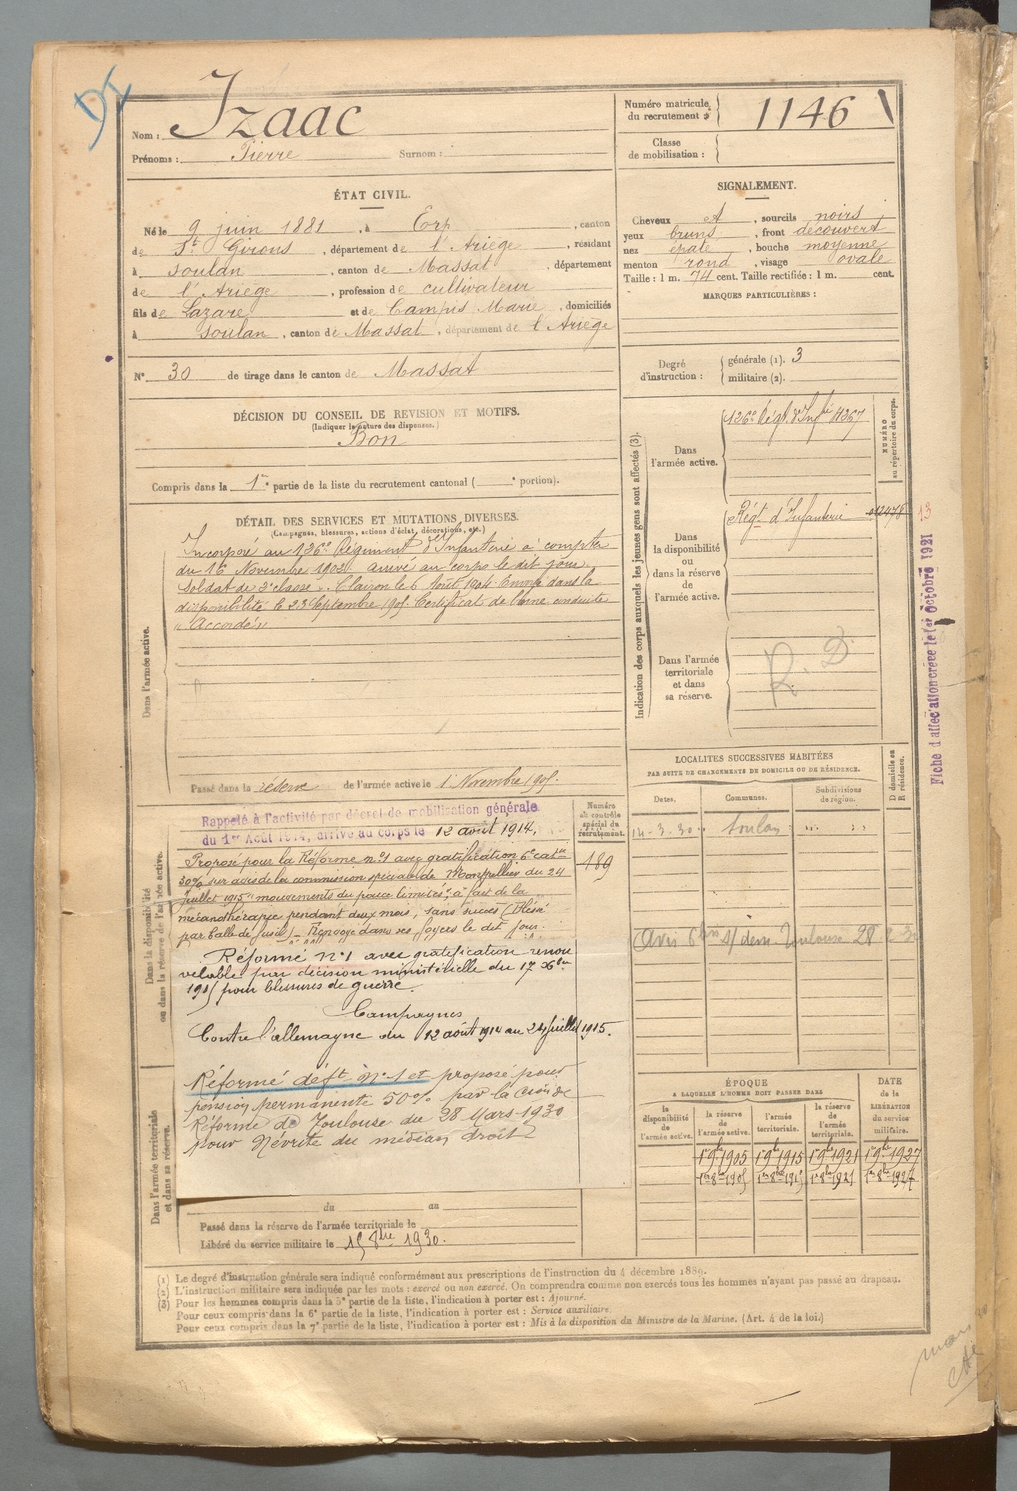 Izaac
Nom :
Prénoms : Pierre Surnom :
Numéro matricule du recrutement : 1146
Classe de mobilisation :
ÉTAT CIVIL.
Né le 9 juin 1881, à Erp, canton
de St Girons, département de l'Ariège, résidant
à Soulan, canton de Massat, département
de l'Ariège, profession de cultivateur
fils de Lazare et de Campis Marie, domiciliés
à Soulan, canton de Massat, département de l'Ariège
N° 30 de tirage dans le canton de Massat
SIGNALEMENT.
Cheveux, sourcils noirs
yeux bruns, front découvert
nez épaté, bouche moyenne
menton rond, visage ovale
Taille : 1 m. 74 cent. Taille rectifiée : 1 m. cent.
MARQUES PARTICULIÈRES :
Degré d'instruction : générale (1). 3
militaire (2).
DÉCISION DU CONSEIL DE REVISION ET MOTIFS.
(Indiquer la nature des dispenses.)
Bon
Compris dans la 1re partie de la liste du recrutement cantonal ( e portion).
DÉTAIL DES SERVICES ET MUTATIONS DIVERSES.
(Campagnes, blessures, actions d'éclat, décorations, etc.)
Incorporé au 126e Régiment d'Infanterie à compter
du 16 Novembre 1902 arrivé au corps le dit jour
Soldat de 2e classe. Clairon le 6 Août 1904 Envoyé dans la
disponibilité le 23 Septembre 1905 Certificat de bonne conduite
"Accordé"
Dans l'armée active.
Passé dans la réserve de l'armée active le 1 Novembre 1905.
Indication des corps auxquels les jeunes gens sont affectés (3).
NUMÉRO au répertoire du corps.
Dans l'armée active.
126e Régt d'Infie
Dans la disponibilité ou dans la réserve de l'armée active.
Régt d'Infanterie
13
Dans l'armée territoriale et dans sa réserve.
R. D
Fiche d'affectation créée le 1er Octobre 1921
LOCALITÉS SUCCESSIVES HABITÉES
PAR SUITE DE CHANGEMENTS DE DOMICILE OU DE RÉSIDENCE.
Dates. Communes. Subdivisions de région. D domicile ou R résidence.
14-3-30 Soulan
Toulouse 28 2 30
Dans la disponibilité ou dans la réserve de l'armée active.
Numéro au contrôle spécial du recrutement.
189
Rappelé à l'activité par décret de mobilisation générale
du 1er Août 1914, arrivé au corps le 12 août 1914.
Proposé pour la Réforme n°1 avec gratification 6e catie
30% sur avis de la commission spéciale de Montpellier du 24
juillet 1915 "mouvements du pouce limités", a fait de la
mécanothérapie pendant deux mois, sans succès (Blessé
par balle de fusil) Renvoyé dans ses foyers le dit jour.
Réformé n°1 avec gratification renou
velable par décision ministérielle du 17 Xbre
1915 pour blessures de guerre.
Campagnes
Contre l'allemagne du 12 août 1914 au 24 juillet 1915.
Réformé déft n°1 et proposé pour
pension permanente 50% par la Con de
Réforme de Toulouse du 28 Mars 1930
pour Névrite du médian droit
Dans l'armée territoriale et dans sa réserve.
du au
Passé dans la réserve de l'armée territoriale le
Libéré du service militaire le 15 8bre 1930.
ÉPOQUE
A LAQUELLE L'HOMME DOIT PASSER DANS
DATE de la LIBÉRATION du service militaire.
la disponibilité de l'armée active. la réserve de l'armée active. l'armée territoriale. la réserve de l'armée territoriale.
1r 9bre 1905 1r 9bre 1915 1r 9bre 1921 1r 9bre 1927
(1) Le degré d'instruction générale sera indiqué conformément aux prescriptions de l'instruction du 4 décembre 1889.
(2) L'instruction militaire sera indiquée par les mots : exercé ou non exercé. On comprendra comme non exercés tous les hommes n'ayant pas passé au drapeau.
(3) Pour les hommes compris dans la 5e partie de la liste, l'indication à porter est : Ajourné.
Pour ceux compris dans la 6e partie de la liste, l'indication à porter est : Service auxiliaire.
Pour ceux compris dans la 7e partie de la liste, l'indication à porter est : Mis à la disposition du Ministre de la Marine. (Art. 4 de la loi.)